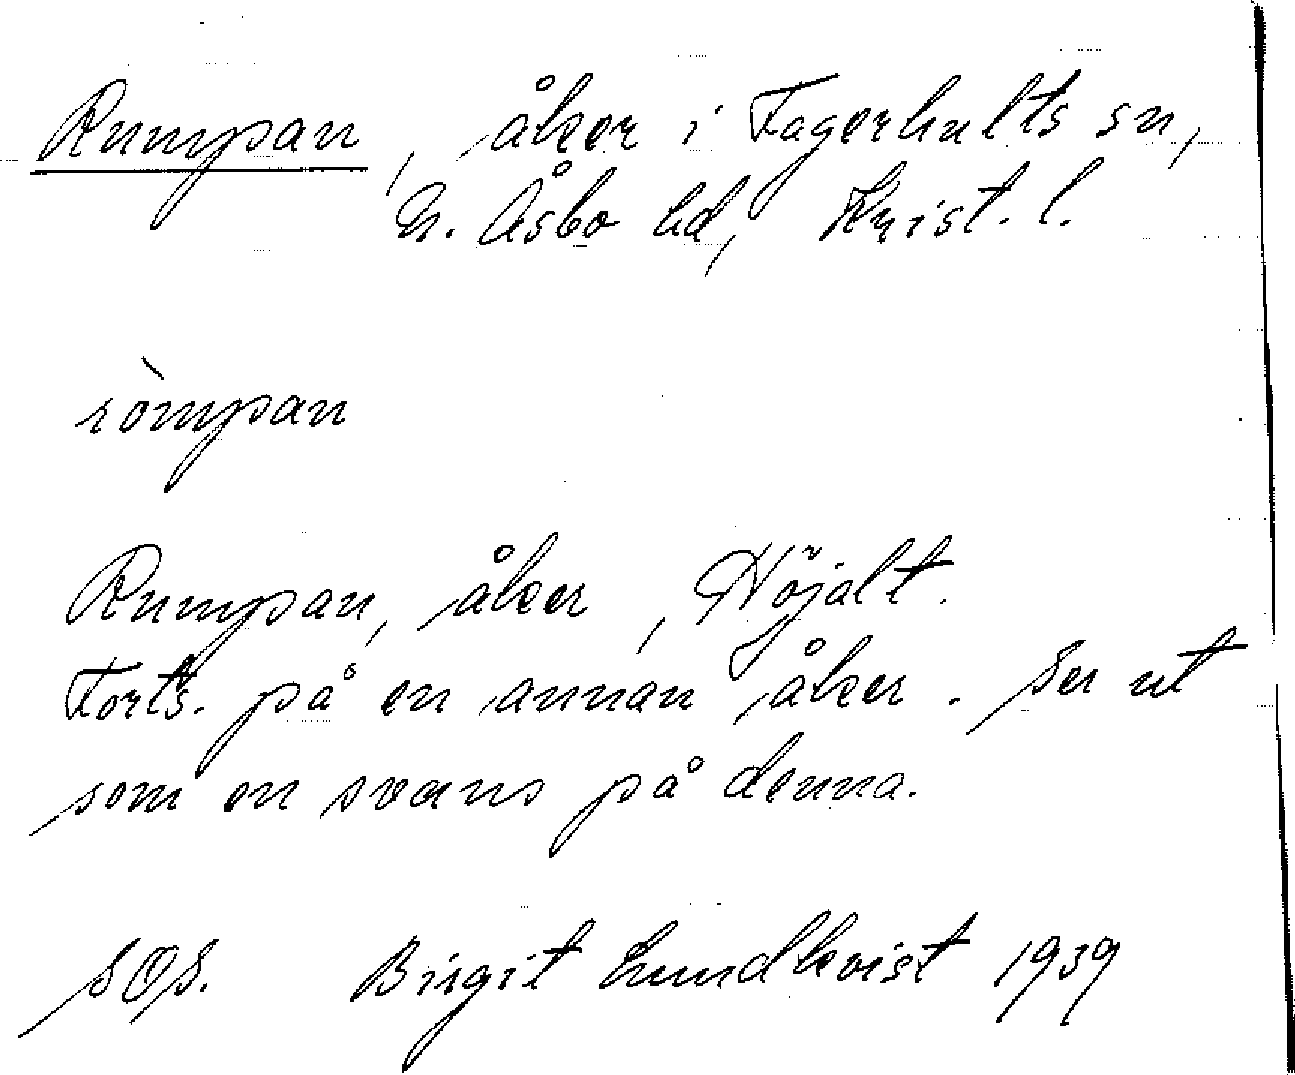 Rumpan, åker i Fagerhults sn,
N. Åsbo hd, Krist. l.
ròmpan
Rumpan, åker, Höjalt.
Forts. på en annan åker. Ser ut
som en svans på denna.
SOS. Birgit Lundkvist 1939